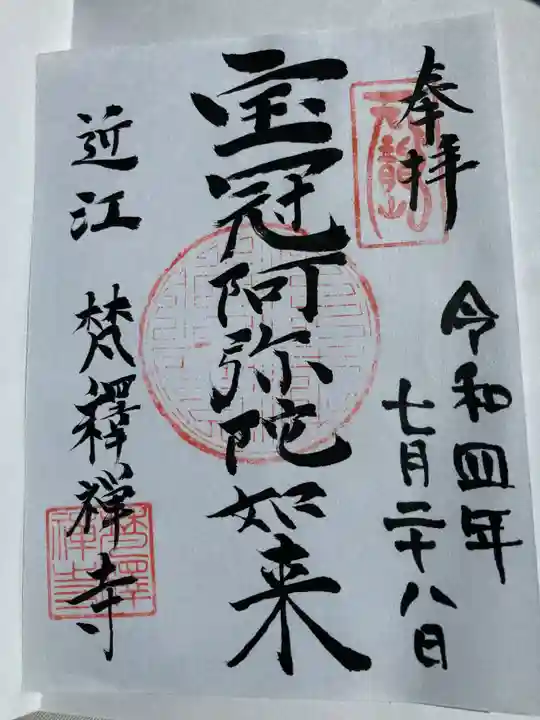 奉拝
令和四年
七月二十八日
宝冠阿弥陀如来
近江 梵釋禅寺
梵釋
禅寺